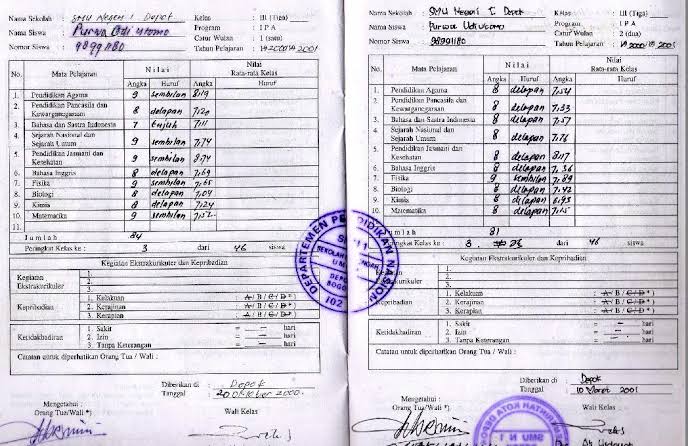 Nama Sekolah : SMU Negeri I Depok
Nama Siswa : Purwa Udiutomo
Nomor Siswa : 98991180
Kelas : III (Tiga)
Program : I P A
Catur Wulan : 1 (satu)
Tahun Pelajaran : 2000/2001
No. Mata Pelajaran Nilai Nilai Rata-rata Kelas
Angka Huruf Angka Huruf
1. Pendidikan Agama 9 sembilan 8,19
2. Pendidikan Pancasila dan Kewarganegaraan 8 delapan 7,20
3. Bahasa dan Sastra Indonesia 7 tujuh 7,11
4. Sejarah Nasional dan Sejarah Umum 9 sembilan 7,74
5. Pendidikan Jasmani dan Kesehatan 9 sembilan 8,74
6. Bahasa Inggris 8 delapan 7,69
7. Fisika 9 sembilan 7,65
8. Biologi 8 delapan 7,04
9. Kimia 8 delapan 7,24
10. Matematika 9 sembilan 7,52
11.
Jumlah 84
Peringkat Kelas ke : 3 dari 46 siswa
Kegiatan Ekstrakurikuler dan Kepribadian
Kegiatan Ekstrakurikuler
1.
2.
3.
Kepribadian
1. Kelakuan : A / B / C / D *)
2. Kerajinan : A / B / C / D *)
3. Kerapian : A / B / C / D *)
Ketidakhadiran
1. Sakit = — hari
2. Izin = — hari
3. Tanpa Keterangan = — hari
Catatan untuk diperhatikan Orang Tua / Wali :
Diberikan di : Depok
Tanggal : 20 Oktober 2000
Mengetahui :
Orang Tua/Wali *) Wali Kelas
Nama Sekolah : SMU Negeri I Depok
Nama Siswa : Purwa Udiutomo
Nomor Siswa : 98991180
Kelas : III (Tiga)
Program : I P A
Catur Wulan : 2 (dua)
Tahun Pelajaran : 2000/2001
No. Mata Pelajaran Nilai Nilai Rata-rata Kelas
Angka Huruf Angka Huruf
1. Pendidikan Agama 8 delapan 7,54
2. Pendidikan Pancasila dan Kewarganegaraan 8 delapan 7,33
3. Bahasa dan Sastra Indonesia 8 delapan 7,57
4. Sejarah Nasional dan Sejarah Umum 8 delapan 7,76
5. Pendidikan Jasmani dan Kesehatan 8 delapan 8,17
6. Bahasa Inggris 8 delapan 7,36
7. Fisika 9 sembilan 7,89
8. Biologi 8 delapan 7,42
9. Kimia 8 delapan 6,93
10. Matematika 8 delapan 7,15
11.
Jumlah 81
Peringkat Kelas ke : 8 dari 46 siswa
Kegiatan Ekstrakurikuler dan Kepribadian
1.
2.
3.
Kepribadian
1. Kelakuan : A / B / C / D *)
2. Kerajinan : A / B / C / D *)
3. Kerapian : A / B / C / D *)
Ketidakhadiran
1. Sakit = — hari
2. Izin = — hari
3. Tanpa Keterangan = — hari
Catatan untuk diperhatikan Orang Tua / Wali :
Diberikan di : Depok
Tanggal : 10 Maret 2001
Mengetahui :
Orang Tua/Wali *) Wali Kelas
DEPARTEMEN PENDIDIKAN NASIONAL
SMU N 1